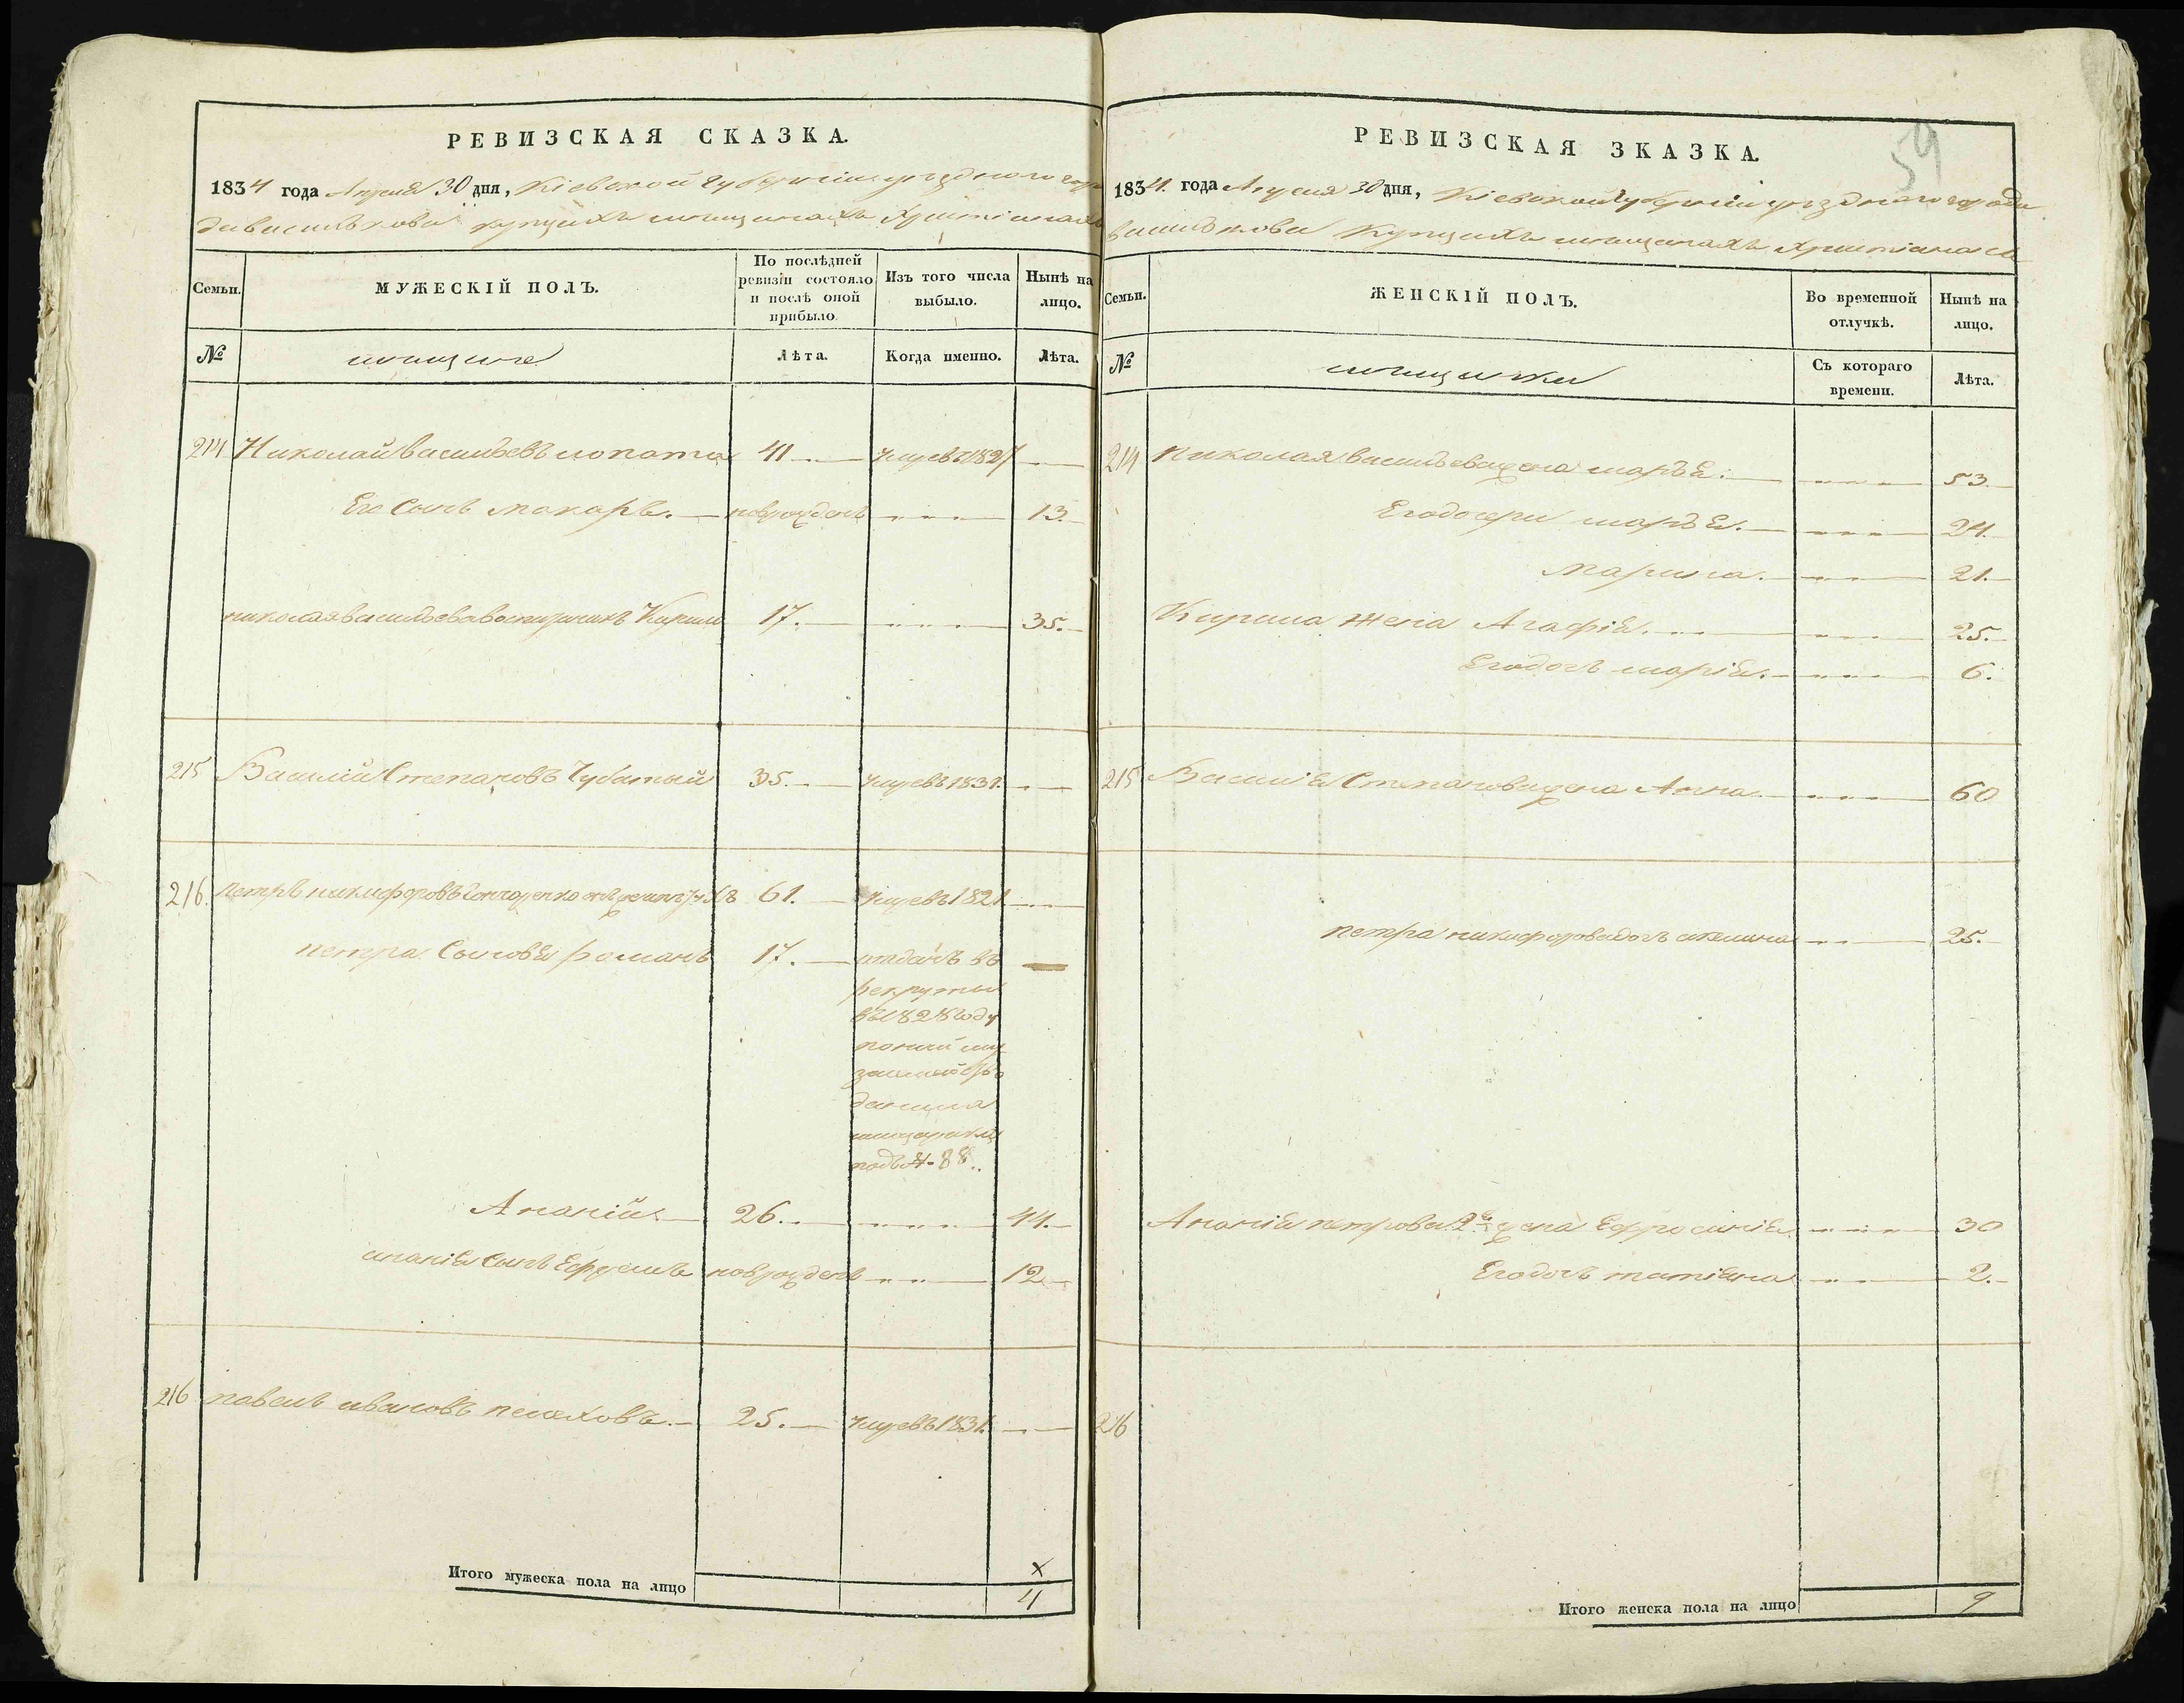 РЕВИЗСКАЯ СКАЗКА.
1834 года Апреля 30 дня, Кіевской губерніи уезднаго горо
да василькова купцахъ мещанахъ христіанахъ
Семьи.
МУЖЕСКІЙ ПОЛЪ.
По послѣдней ревизіи состояло и послѣ оной прибыло.
Изъ того числа выбыло.
Нынѣ на лицо.
№
мещане
Лѣта.
Когда именно.
Лѣта.
214 Николай васильевъ лопата 41 умре въ 1827
Его Сынъ макаръ. новрожденъ 13.
николая васильева воспитаникъ Кирил 17. 35.
215 Василий Степановъ Чубатый 35. умре въ 1831.
216. петръ никифоровъ 61. умре въ 1821
петра Сыновья романъ 17. отданъ въ
рекруты
въ 1828 году
данила
подъ № 88.
Ананій 26. 44.
ананія Сынъ Ефремъ новрожденъ 12
216 павелъ ивановъ пелеховъ. 25. умре въ 1831.
х
Итого мужеска пола на лицо 4
59
РЕВИЗСКАЯ ЗКАЗКА.
1834. года Апреля 30 дня, Кіевской губерніи уезднаго города
василькова Купцахъ мещанахъ христіанахъ
Семьи.
ЖЕНСКІЙ ПОЛЪ.
Во временной отлучкѣ.
Нынѣ на лицо.
№
мещанки
Съ котораго времени.
Лѣта.
214 николая васильева жена марья. 53.
Его дочери марья. 24.
марина. 21.
Кирила Жена Агафія. 25.
Его дочь марія. 6.
215 Василія Степанова жена Анна 60
петра никифорова дочь акелина 25.
Ананія петрова 2я жена Ефросинія 30
Его дочь татіяна 2.
216
Итого женска пола на лицо 9